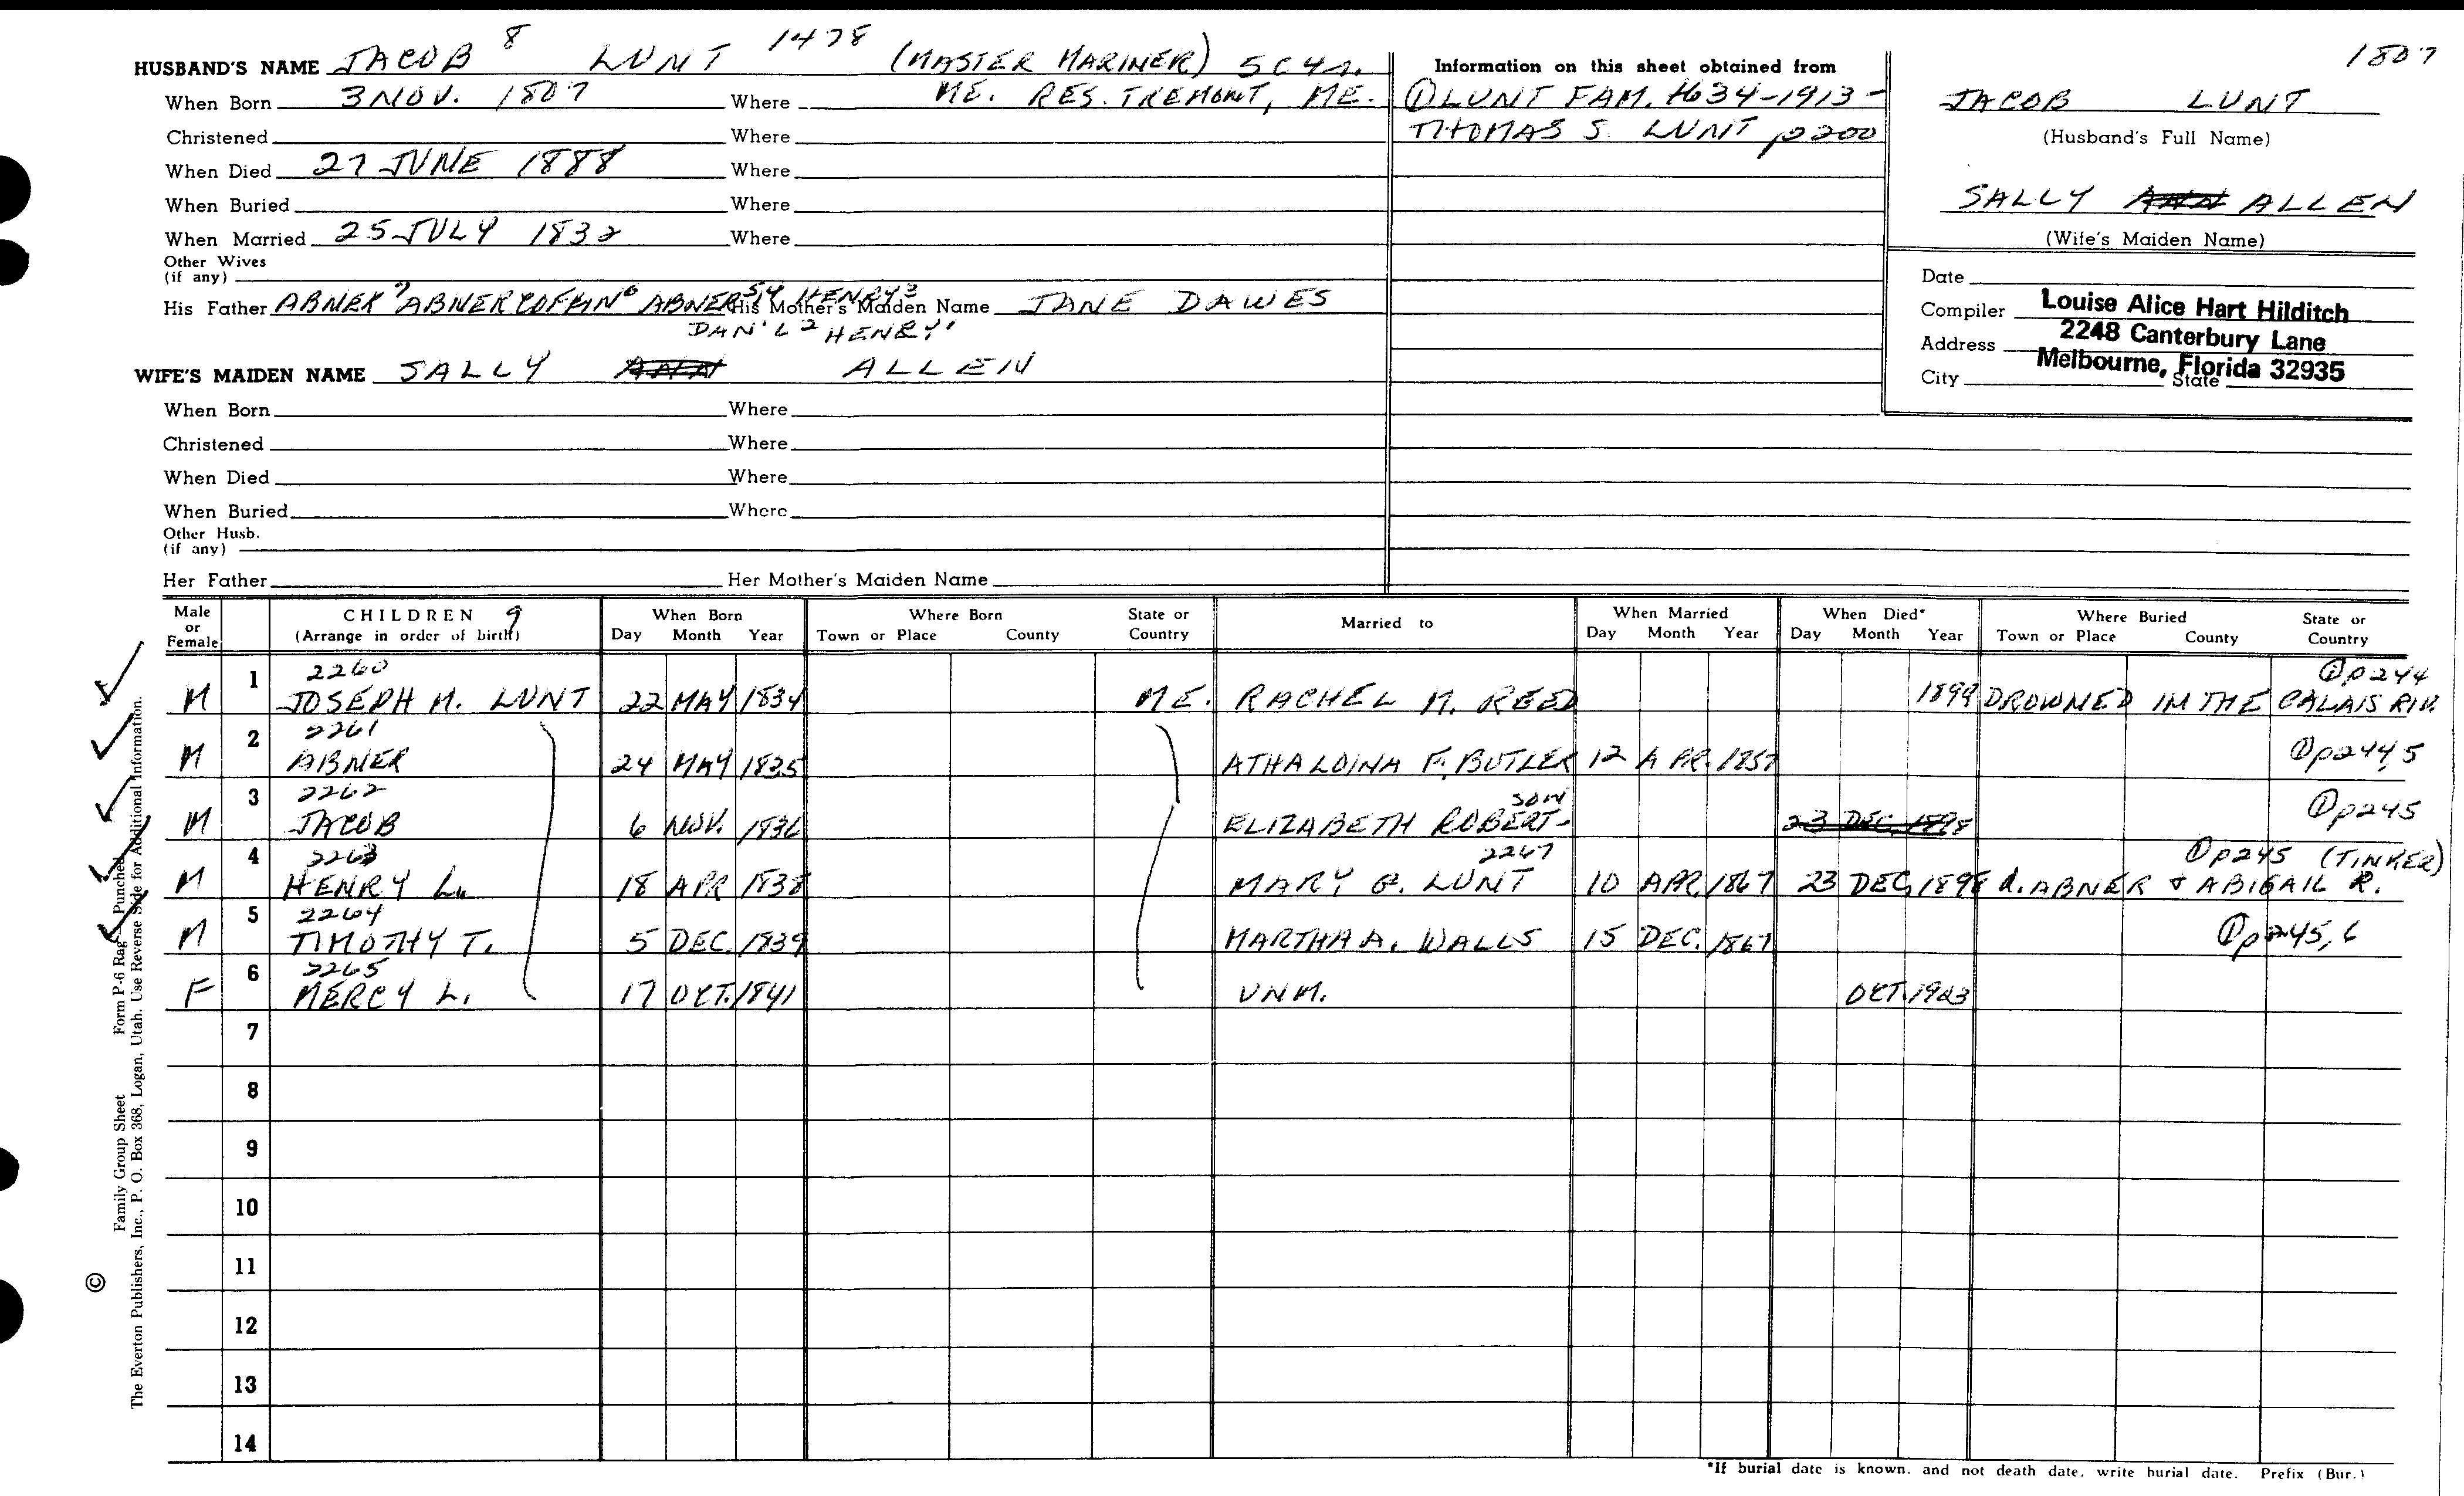 1807
HUSBAND'S NAME JACOB 8 LUNT 1478 (MASTER MARINER) 5C4A.
When Born 3 NOV. 1807 Where ME. RES. TREMONT, ME.
Christened Where
When Died 27 JUNE 1888 Where
When Buried Where
When Married 25 JULY 1832 Where
Other Wives
(if any)
His Father ABNER 7 ABNER COFFIN 6 ABNER 5,4 HENRY 3 His Mother's Maiden Name JANE DAWES
DAN'L 2 HENRY 1
WIFE'S MAIDEN NAME SALLY ANN ALLEN
When Born Where
Christened Where
When Died Where
When Buried Where
Other Husb.
(if any)
Her Father Her Mother's Maiden Name
Information on this sheet obtained from
① LUNT FAM. 1634-1913 -
THOMAS S. LUNT p200
JACOB LUNT
(Husband's Full Name)
SALLY ANN ALLEN
(Wife's Maiden Name)
Date
Compiler Louise Alice Hart Hilditch
Address 2248 Canterbury Lane
Melbourne, Florida 32935
City State
Male or Female CHILDREN 9 (Arrange in order of birth) When Born Day Month Year Where Born Town or Place County State or Country Married to When Married Day Month Year When Died* Day Month Year Where Buried Town or Place County State or Country
2260 ① p244
M 1 JOSEPH M. LUNT 22 MAY 1834 ME. RACHEL M. REED 1899 DROWNED IN THE CALAIS RIV.
2261
M 2 ABNER 24 MAY 1835 ATHALDINA F. BUTLER 12 APR. 1857 ① p244,5
2262 SON
M 3 JACOB 6 NOV. 1836 ELIZABETH ROBERT- 23 DEC. 1898 ① p245
2263 2267 ① p245 (TINKER)
M 4 HENRY L. 18 APR 1838 MARY G. LUNT 10 APR. 1867 23 DEC. 1898 d. ABNER & ABIGAIL R.
2264
M 5 TIMOTHY T. 5 DEC. 1839 MARTHA A. WALLS 15 DEC. 1867 ① p245,6
2265
F 6 MERCY L. 17 OCT. 1841 UNM. OCT. 1903
7
8
9
10
11
12
13
14
*If burial date is known, and not death date, write burial date. Prefix (Bur.)
© Family Group Sheet Form P-6 Rag - Punched
The Everton Publishers, Inc., P. O. Box 368, Logan, Utah. Use Reverse Side for Additional Information.